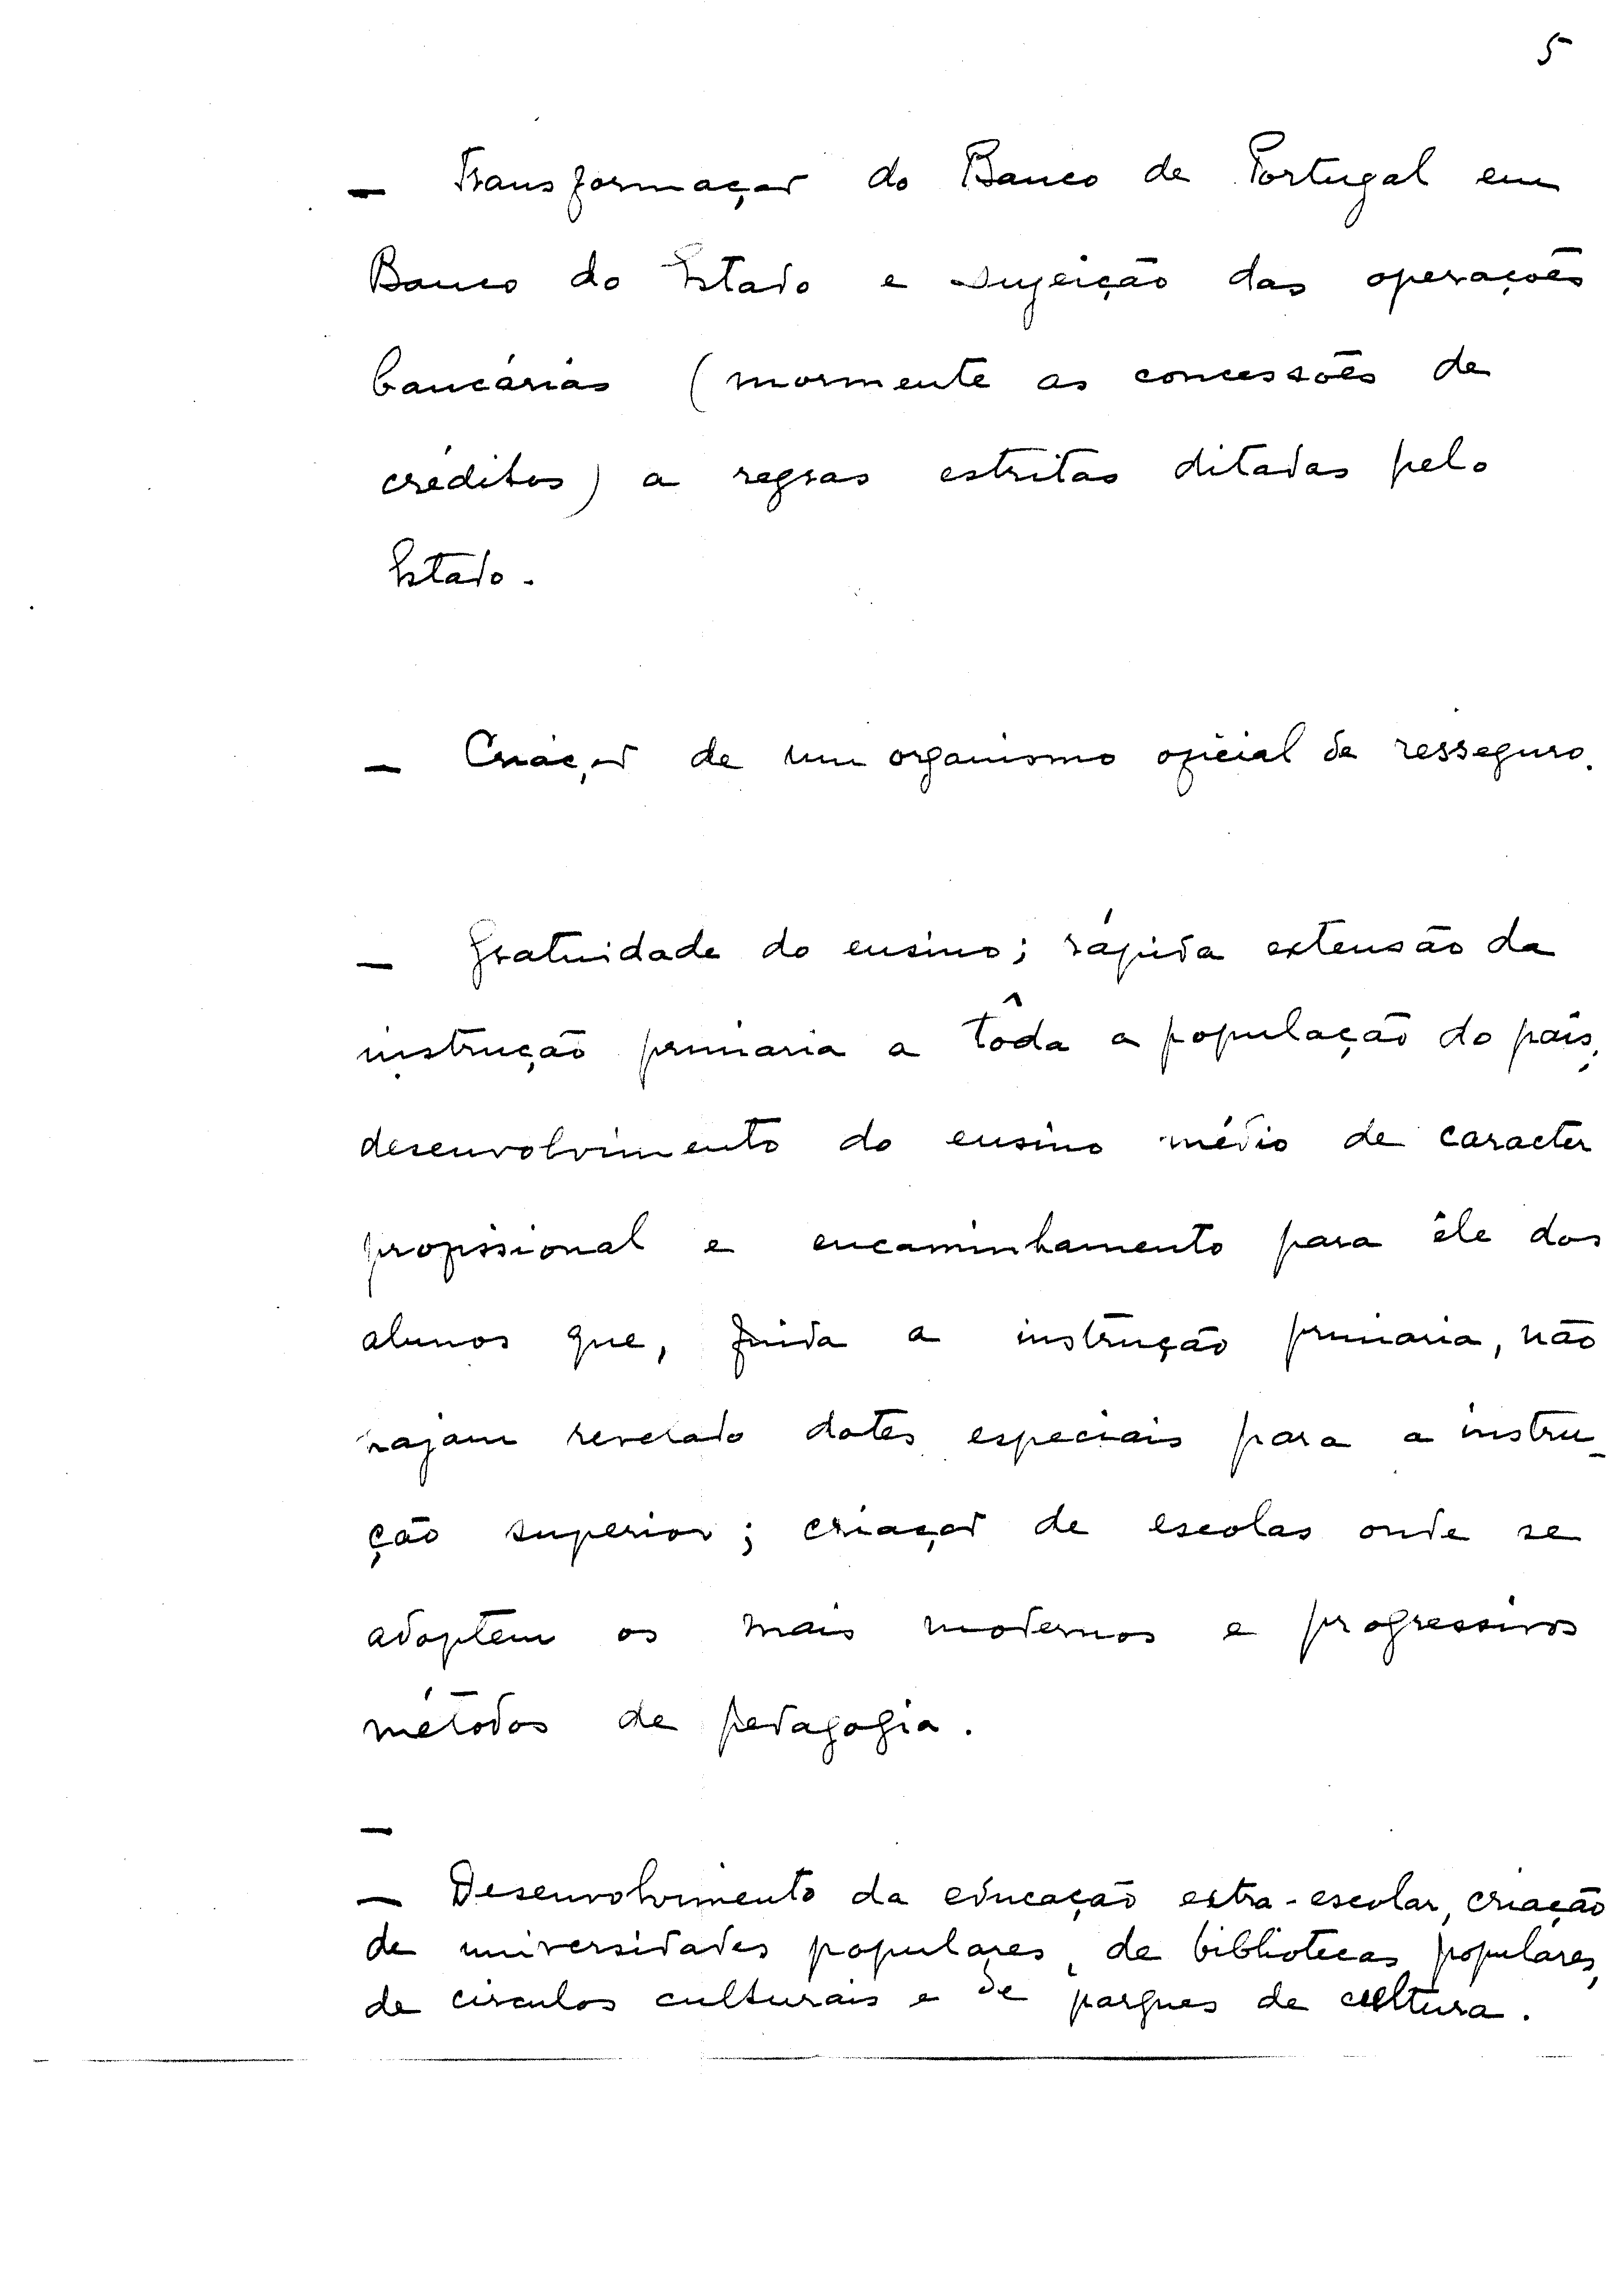 5
— Transformação do Banco de Portugal em
Banco do Estado e sujeição das operações
bancárias (mormente as concessões de
créditos) a regras estritas ditadas pelo
Estado.
— Criação de um organismo oficial de resseguro.
— Gratuidade do ensino; rápida extensão da
instrução primaria a tôda a população do país;
desenvolvimento do ensino médio de caracter
profissional e encaminhamento para êle dos
alunos que, finda a instrução primaria, não
hajam revelado dotes especiais para a instru-
ção superior; criação de escolas onde se
adoptem os mais modernos e progressivos
métodos de pedagogia.
—
— Desenvolvimento da educação extra-escolar, criação
de universidades populares, de bibliotecas populares,
de circulos culturais e de parques de cultura.